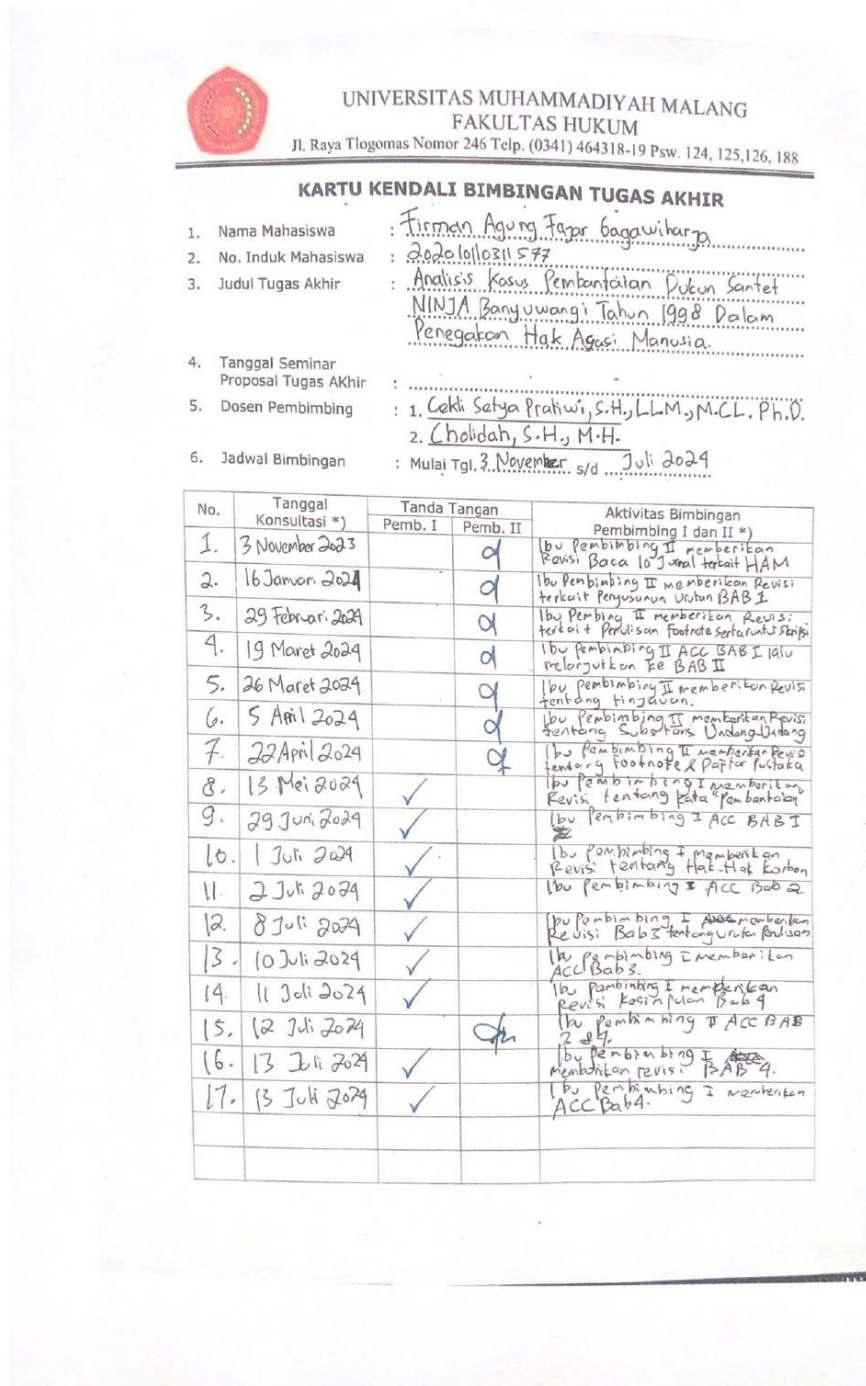 UNIVERSITAS MUHAMMADIYAH MALANG
FAKULTAS HUKUM
Jl. Raya Tlogomas Nomor 246 Telp. (0341) 464318-19 Psw. 124, 125,126, 188
KARTU KENDALI BIMBINGAN TUGAS AKHIR
1. Nama Mahasiswa : Firman Agung Fajar Bagawiharja
2. No. Induk Mahasiswa : 202010110311577
3. Judul Tugas Akhir : Analisis Kasus Pembantaian Dukun Santet
NINJA Banyuwangi Tahun 1998 Dalam
Penegakan Hak Agasi Manusia.
4. Tanggal Seminar
Proposal Tugas AKhir :
5. Dosen Pembimbing : 1. Cekli Setya Pratiwi, S.H., LL.M., M.CL. Ph.D.
2. Cholidah, S.H., M.H.
6. Jadwal Bimbingan : Mulai Tgl. 3 November s/d Juli 2024
No. Tanggal Konsultasi *) Tanda Tangan Pemb. I Pemb. II Aktivitas Bimbingan Pembimbing I dan II *)
1. 3 November 2023 Ibu Pembimbing II memberikan
Revisi Baca 10 Jurnal terkait HAM
2. 16 Januari 2024 Ibu Pembimbing II memberikan Revisi
terkait Penyusunan Urutan BAB 1
3. 29 Februari 2024 Ibu Pembing II memberikan Revisi
terkait Penulisan Footnote serta runtut Skripsi
4. 19 Maret 2024 Ibu Pembimbing II ACC BAB I lalu
melanjutkan ke BAB II
5. 26 Maret 2024 Ibu pembimbing II memberikan Revisi
tentang tinjauan.
6. 5 April 2024 Ibu Pembimbing II memberikan Revisi
tentang Substans Undang-Undang
7. 22 April 2024 Ibu Pembimbing II memberikan Revisi
tentang Footnote & Daftar Pustaka
8. 13 Mei 2024 Ibu Pembimbing I memberikan
Revisi tentang kata "Pembantaian"
9. 29 Juni 2024 Ibu Pembimbing I ACC BAB I
10. 1 Juli 2024 Ibu Pembimbing I memberikan
Revisi tentang Hak-Hak Korban
11. 2 Juli 2024 Ibu Pembimbing I ACC Bab 2
12. 8 Juli 2024 Ibu Pembimbing I memberikan
Revisi Bab3 tentang urutan Penulisan
13. 10 Juli 2024 Ibu Pembimbing I memberikan
ACC Bab3.
14. 11 Juli 2024 Ibu Pembimbing I memberikan
Revisi Kesimpulan Bab 4
15. 12 Juli 2024 Ibu Pembimbing II ACC BAB
4.
16. 13 Juli 2024 Ibu Pembimbing I
memberikan revisi BAB 4.
17. 13 Juli 2024 Ibu Pembimbing I memberikan
ACC Bab4.